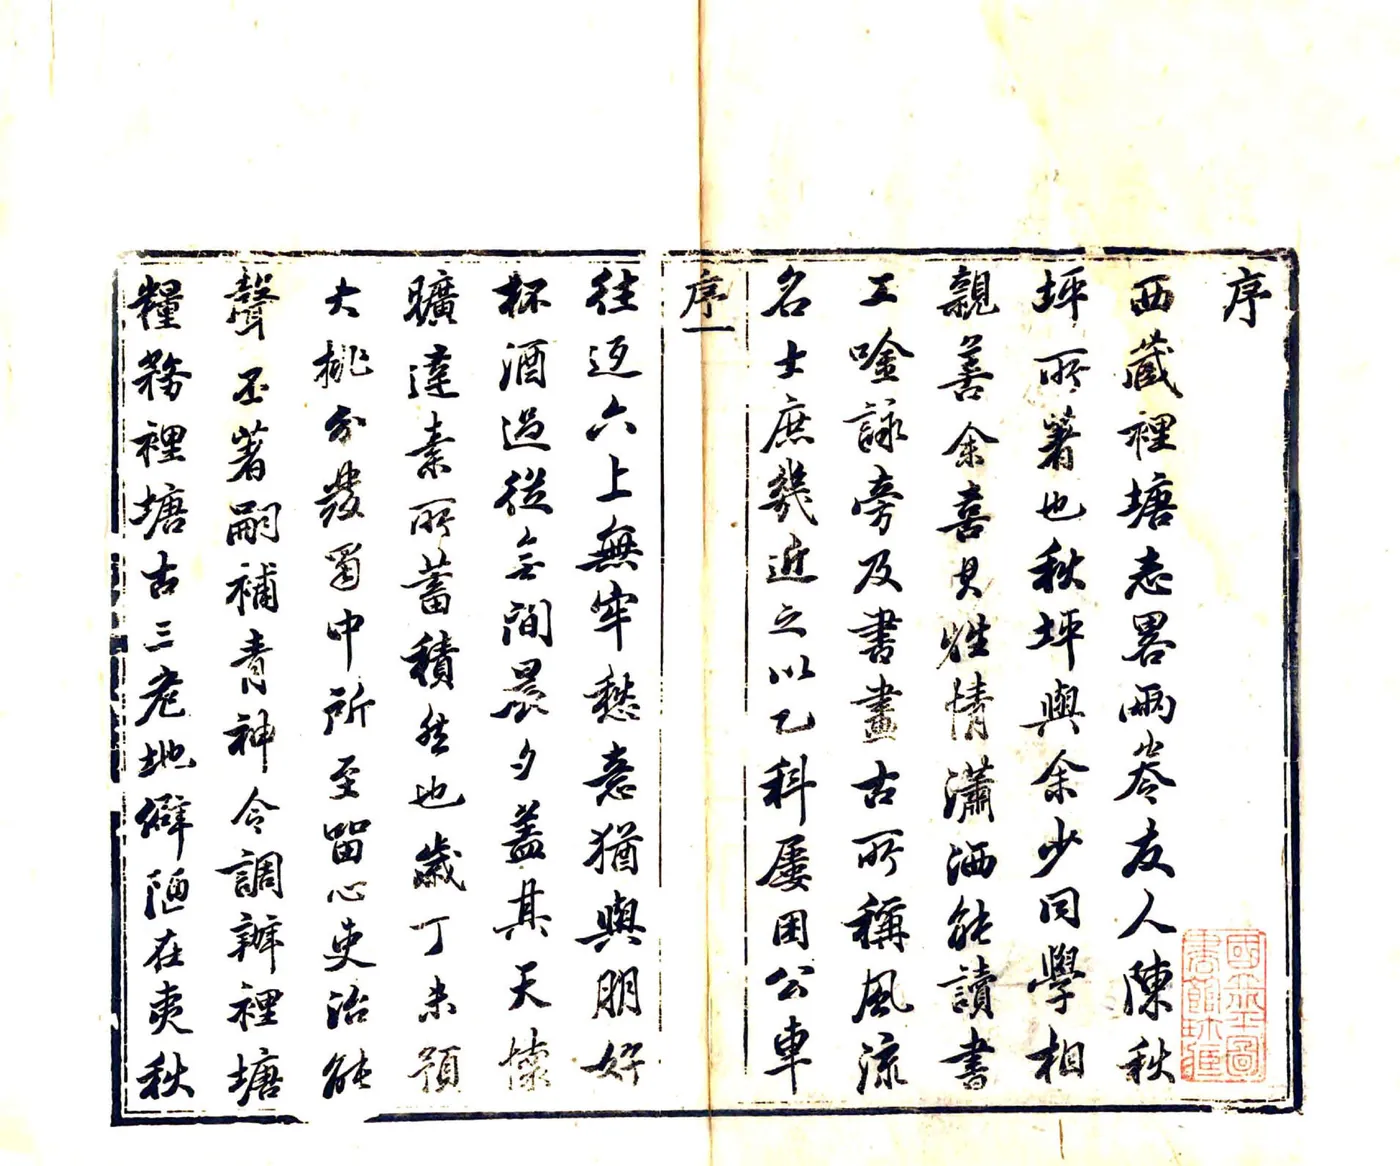 序
西藏裡塘志畧兩卷友人陳秋
坪所著也秋坪與余少同學相
親善余喜其性情瀟洒能讀書
工唫詠旁及書畫古所稱風流
名士庶幾近之以乙科屢困公車
序一
往返六上無牢愁意猶與朋好
杯酒過從無間晨夕蓋其天懷
曠達素所蓄積然也歲丁未預
大挑分發蜀中所至留心吏治能
聲丕著嗣補青神令調辦裡塘
糧務裡塘古三危地僻陋在夷秋
國立北平圖
書館收藏